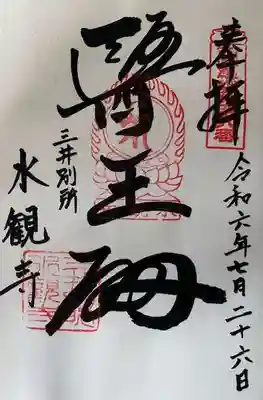 奉拝
令和六年七月二十六日
醫王殿
三井別所
水観寺